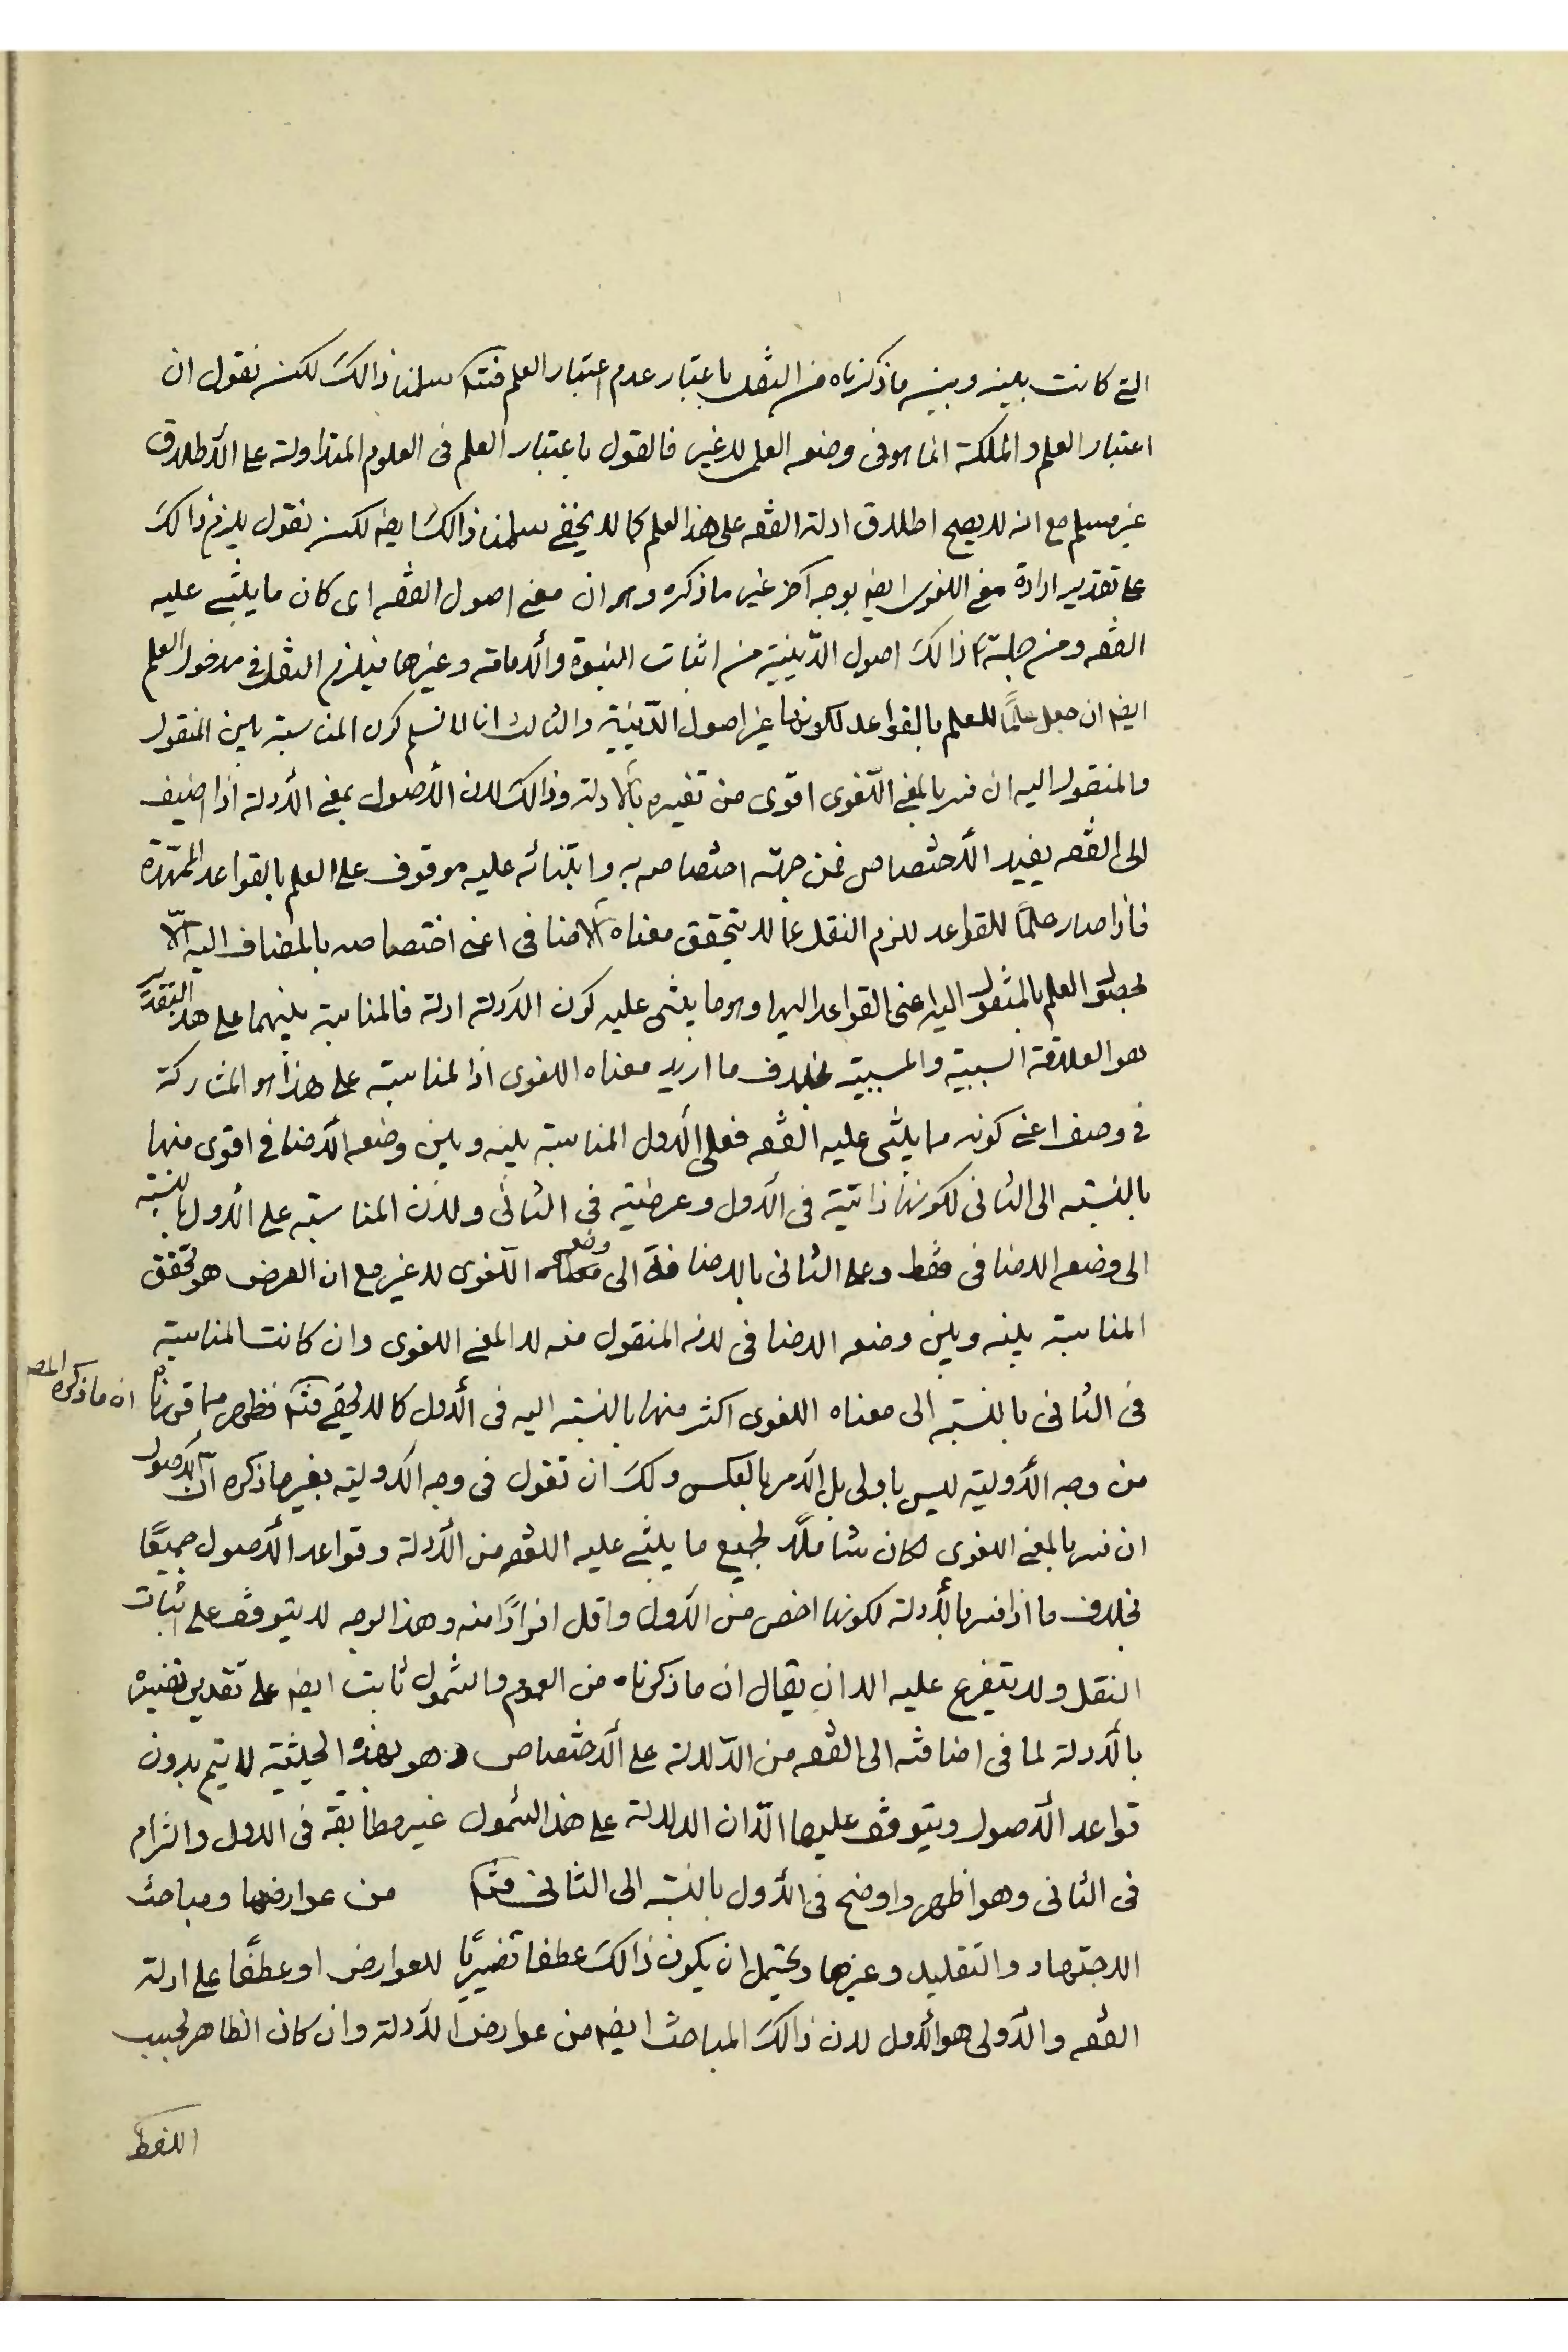 التي كانت بينه وبينه ما ذكرناه من النقل باعتبار عدم اعتبار العلم فتد سلمنا ذالك لكن نقول ان
اعتبار العلم والملكة انما هو في وضعه العلمى لا غير فالقول باعتبار العلم فى العلوم المتداولة على الاطلاق
غير مسلم مع انه لا يصح اطلاق ادلة الفقه على هذا العلم كما لا يخفى سلمنا ذالك ايضه لكن نقول يلزم ذالك
على تقدير ارادة معنى اللغوى ايضه بوجه آخر غير ما ذكره وهو ان معنى اصول الفقه اى كان ما يبتنى عليه
الفقه ومن جملة ذالك اصول الدّينيّة من اثبات النبوة والامامة وغيرها فيلزم النقل فى مدخول العلم
ايضه ان جعل علمًا للعلم بالقواعد لكونها غير اصول الدّينيّة والثالث انا لا نسلم كون المناسبة بين المنقول
والمنقول اليه ان فسر بالمعنى اللّغوى اقوى من تفسيره بالادلة وذالك لان الأصول بمعنى الأدلة اذا اضيف
الى الفقه يفيد الأختصاص فمن جهة اختصاصه به وابتنائه عليه موقوف على العلم بالقواعد الممهّدة
فاذا صار علمًا للقواعد للزم النقل عما لا يتحقق معناه الاضافى اعنى اختصاصه بالمضاف اليه الّا
بحصول العلم بالمنقول اليه اعنى القواعد اليها وهو ما يبتنى عليه كون الادلة ادلة فالمناسبة بينهما على هذا التقدير
هو العلاقة السببية والمسببية بخلاف ما اريد معناه اللغوى اذ المناسبة على هذا هو المشاركة
فى وصف اعنى كونه مما يبتنى عليه الفقه فعلى الأول المناسبة بينه وبين وضعه الأضافى اقوى منها
بالنسبة الى الثانى لكونها ذاتيّة فى الأول وعرضيّة فى الثانى ولان المناسبة على الأول بالنسبة
الى وضعه الاضافى فقط وعلى الثانى بالاضافة الى وضعه اللّغوى لا غير مع ان الغرض هو تحقق
المناسبة بينه وبين وضعه الاضافى لانه المنقول منه لا المعنى اللغوى وان كانت المناسبة
فى الثانى بالنسبة الى معناه اللغوى اكثر منها بالنسبة اليه فى الأول كما لا يخفى فتد فظهر مما قررنا ان ما ذكره المصـ
من وجه الأولية ليس باولى بل الأمر بالعكس ولك ان تقول فى وجه الاولية بغير ما ذكره انّ الأصول
ان فسر بالمعنى اللغوى لكان شاملًا لجميع ما يبتنى عليه الفقه من الأدلة وقواعد الأصول جميعًا
بخلاف ما اذا فسر بالأدلة لكونها اخص من الأول واقل افرادًا منه وهذا الوجه لا يتوقف على اثبات
النقل ولا يتفرع عليه الا ان يقال ان ما ذكرناه من العموم والشمول ثابت ايضه على تقدير تفسيره
بالأدلة لما فى اضافته الى الفقه من الدّلالة على الأختصاص وهو بهذه الحيثية لا يتم بدون
قواعد الأصول ويتوقف عليها الّا ان الدلالة على هذا الشمول غير مطابقة فى الاول والتزام
فى الثانى وهو اظهر واوضح فى الأول بالنسبة الى الثانى فتد من عوارضها ومباحث
الاجتهاد والتقليد وغيرها ويحتمل ان يكون ذالك عطفا تفسيريًا للعوارض او عطفًا على ادلة
الفقه والأولى هو الأول لان ذالك المباحث ايضه من عوارض الأدلة وان كان الظاهر بحسب
اللفظ